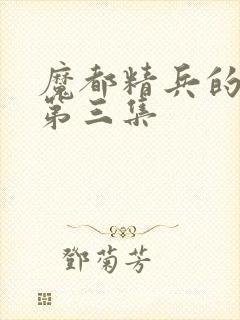 魔都精兵的
第三集
鄧菊芳